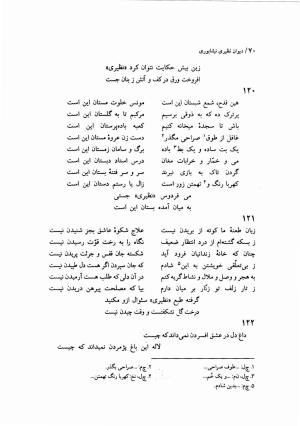 ۷۰ / دیوان نظیری نیشابوری
زین بیش حکایت نتوان کرد «نظیری»
افروخت ورق در کف و آتش ز بنان جست
۱۲۰
هین قدح، شمع شبستان این است
مونس خلوت مستان این است
پرده‌ام ده که به ذوقی برسیم
مرکبم تا به گلستان این است
باش تا سجدهٔ میخانه کنیم
کعبه باده‌پرستان این است
غافل از طوف صراحی مگذر
دست زن عروهٔ مستان این است
یک بت ساده و یک بط باده
برگ و سامان زمستان این است
می و خمّار و خرابات مغان
درس استاد دبستان این است
گردن تاک به بازی نبرند
سر و سر فتنهٔ بستان این است
کهربا رنگ و تهمتن زور است
زال یا رستم دستان این است
می فردوس «نظیری» جستی
به میان آمده بستان این است
۱۲۱
زبان طعنهٔ ما کوته از بریدن نیست
علاج شکوهٔ عاشق بجز شنیدن نیست
ز بسکه گشته‌ام از درد انتظار ضعیف
نگاه را به رخت قوّت رسیدن نیست
چنان که خانهٔ زندانیان فرود آید
شکسته جان قفس و جرئت پریدن نیست
ز بی‌تعلّقی خویشتن به این شادم
که جان سپردن اگر هست دل طپیدن نیست
به وصل و وصال و ملال و نشاط گریه کنم
در آن دلی که طاقت آرمیدن نیست
ز تار زلف تو زنّار بر میان دارم
بیا که مصلحت پیرهن دریدن نیست
گرفته طبع «نظیری» سئوال ازو مکنید
درخت گل نشکفته‌ست و وقت چیدن نیست
۱۲۲
داغ دل در عشق افسردن نمی‌داند که چیست
لاله این باغ پژمردن نمیداند که چیست
۱. ج‌ل، ...طوف صراحی...
۲. ج‌م: ...صراحی بگذر.
۳. ج‌ل، ن‌م: ...و یک خُم...
۴. ج‌ل، ن‌ج: کهربا رنگ تهمتن...
۵. ج‌م: ...بدین شادم.